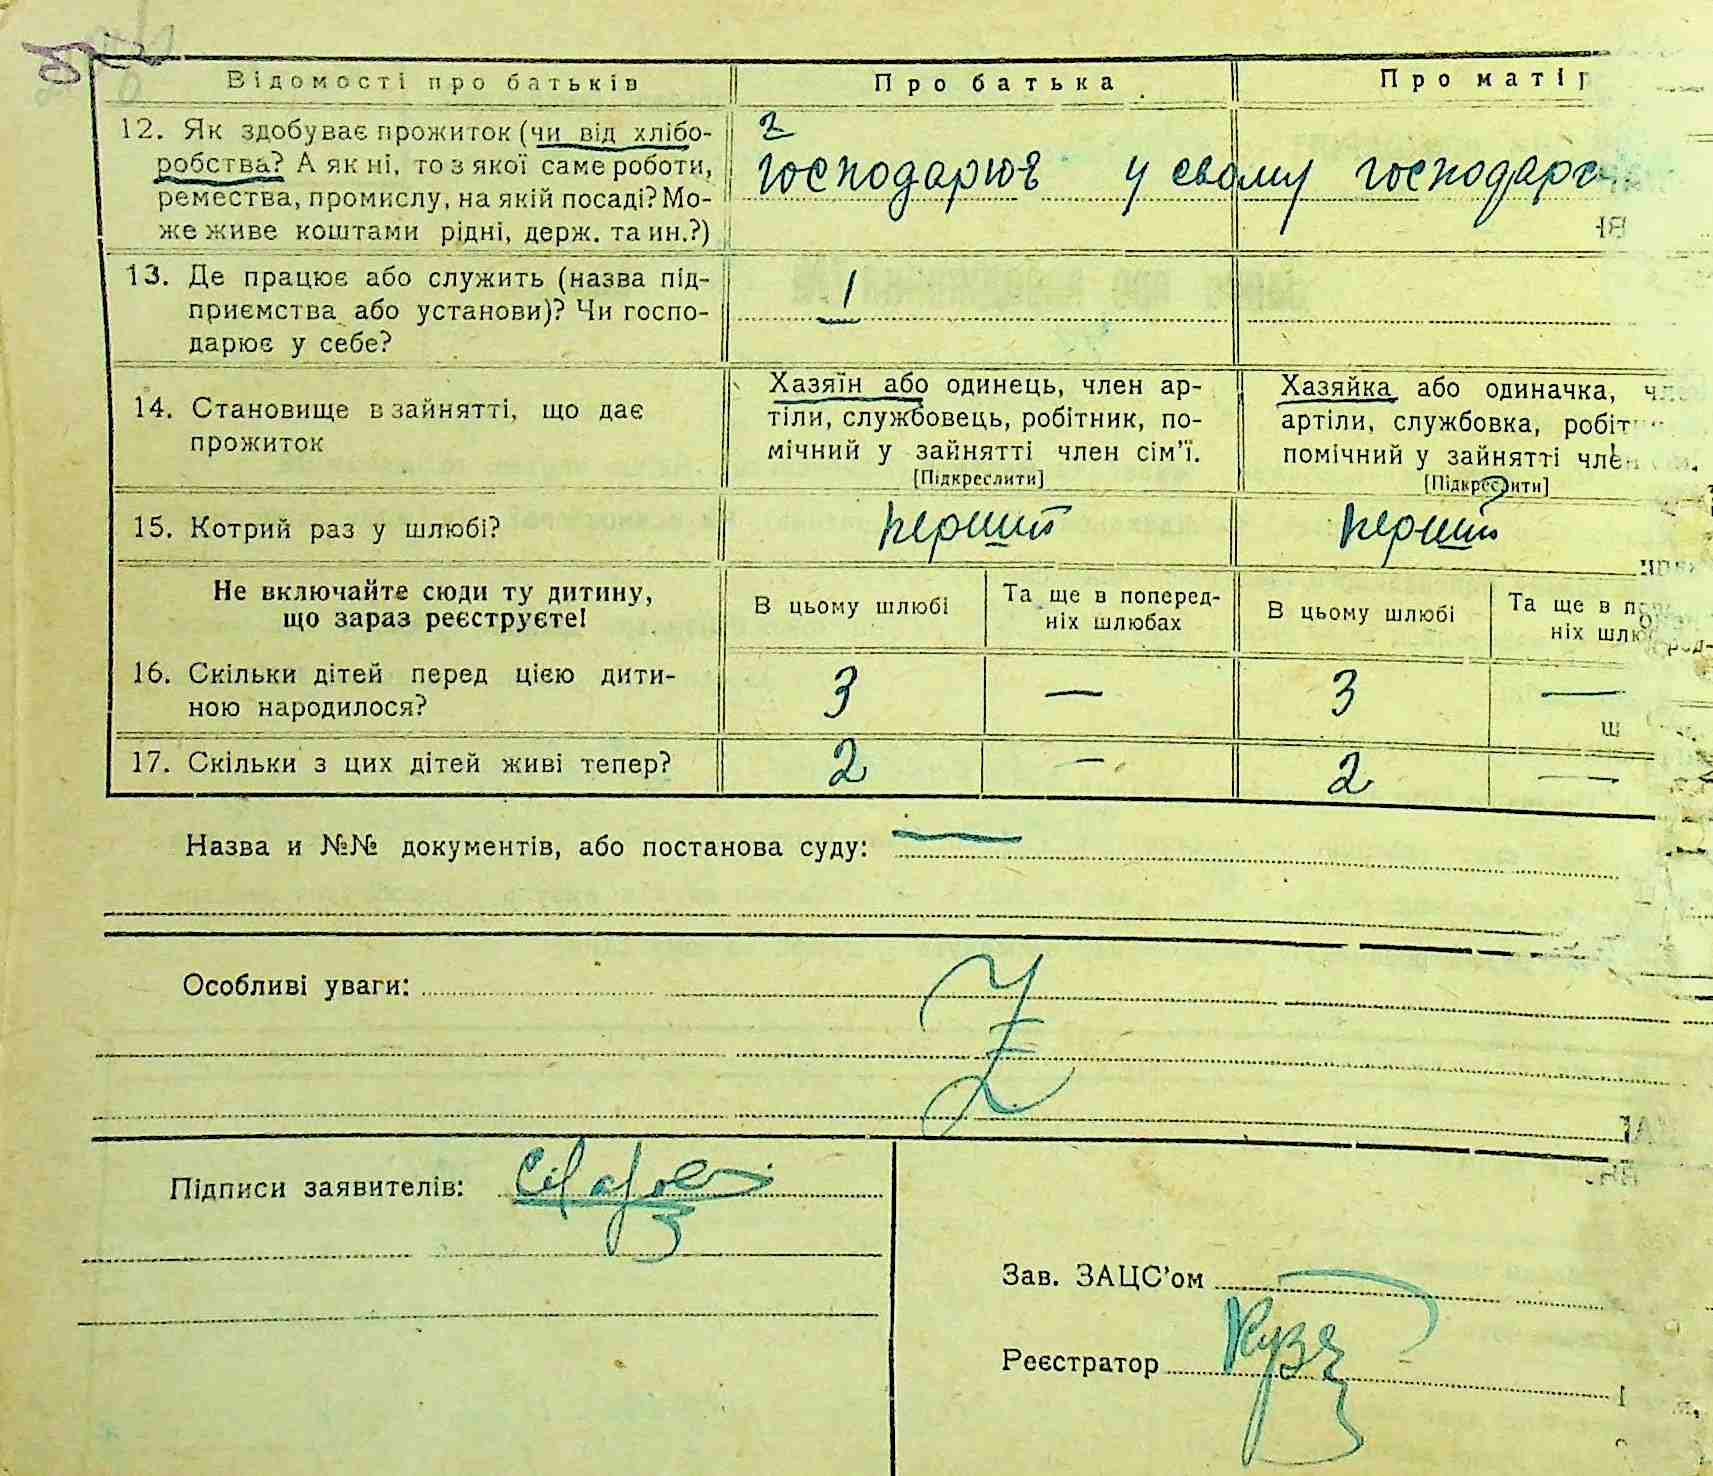 Відомості про батьків Про батька Про матір
12. Як здобуває прожиток (чи від хлібо-
робства? А як ні, то з якої саме роботи,
ремества, промислу, на якій посаді? Мо-
же живе коштами рідні, держ. та ин.?)
господарює у свому
13. Де працює або служить (назва під-
приємства або установи)? Чи госпо-
дарює у себе?
1
14. Становище в зайнятті, що дає
прожиток
Хазяїн або одинець, член ар-
тіли, службовець, робітник, по-
мічний у зайнятті член сім’ї.
[Підкреслити]
Хазяйка або одиначка,
артіли, службовка,
помічний у зайнятті
[Підкреслити]
15. Котрий раз у шлюбі? перший перший
Не включайте сюди ту дитину,
що зараз реєструєте!
В цьому шлюбі
Та ще в поперед-
ніх шлюбах
В цьому шлюбі
Та ще в
ніх
16. Скільки дітей перед цією дити-
ною народилося?
3 — 3 —
17. Скільки з цих дітей живі тепер? 2 — 2 —
Назва и №№ документів, або постанова суду: —
Особливі уваги:
Z
Підписи заявителів:
Зав. ЗАЦС’ом
Реєстратор